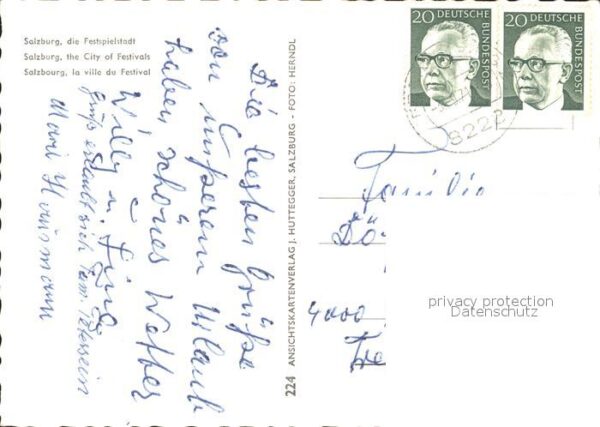 Salzburg, die Festspielstadt
Salzburg, the City of Festivals
Salzbourg, la ville du Festival
Die besten Grüße
von unserem Urlaub
haben schönes Wetter
Willy u.
Grüß erlaubt sich Fam.
Mari
224 ANSICHTSKARTENVERLAG J. HUTTEGGER, SALZBURG - FOTO: HERNDL
20 DEUTSCHE BUNDESPOST
20 DEUTSCHE BUNDESPOST
8222
Familie
Dö
4000
privacy protection
Datenschutz